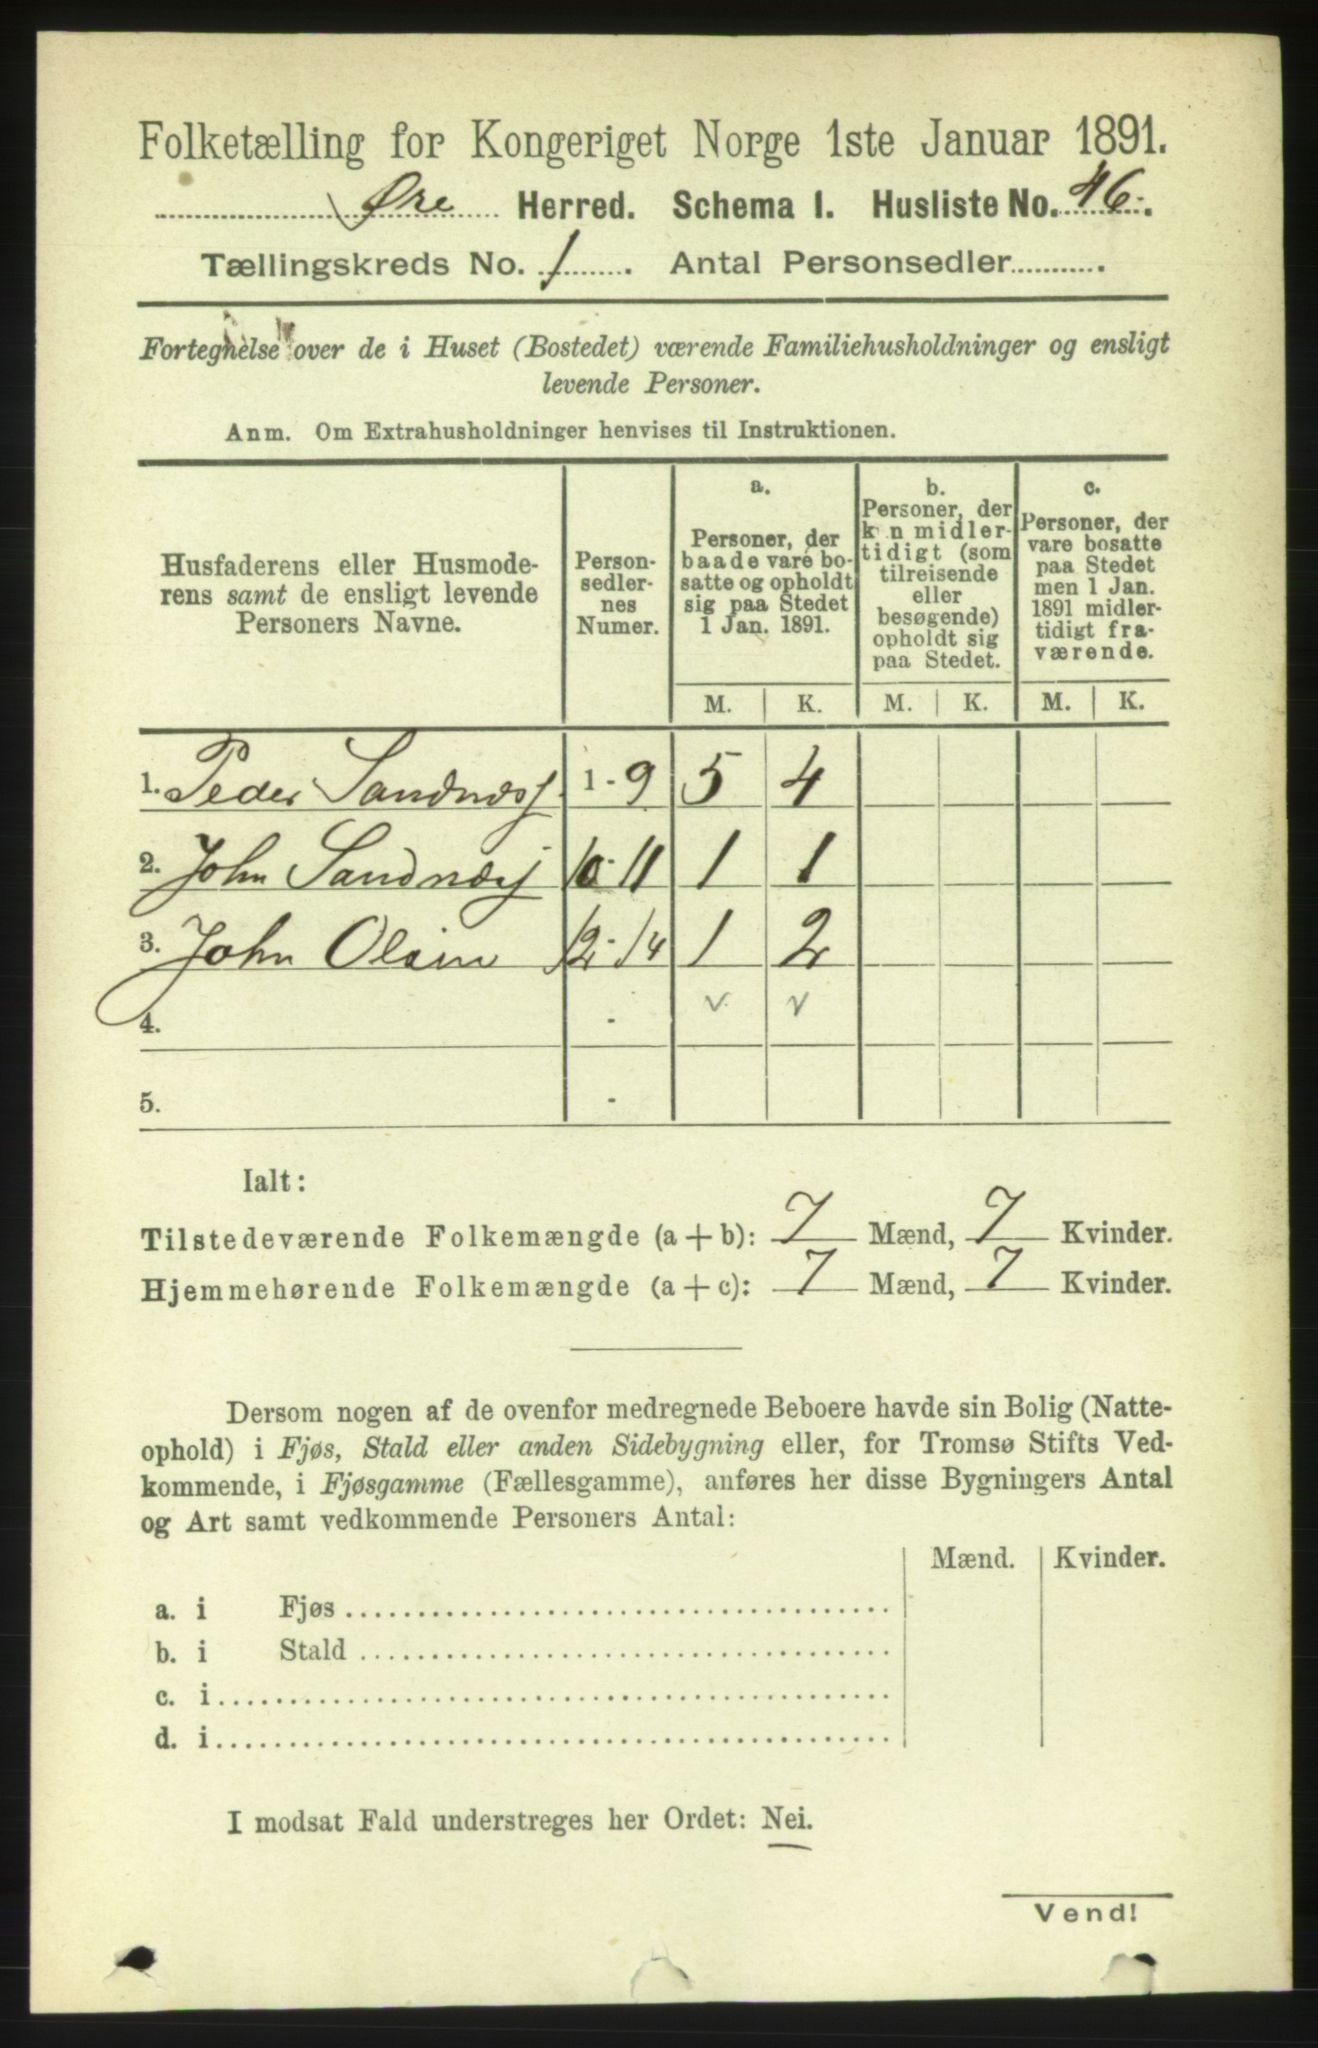 Folketælling for Kongeriget Norge 1ste Januar 1891.
Øre Herred. Schema I. Husliste No. 46.
Tællingskreds No. 1. Antal Personsedler............
Fortegnelse over de i Huset (Bostedet) værende Familiehusholdninger og ensligt
levende Personer.
Anm. Om Extrahusholdninger henvises til Instruktionen.
Husfaderens eller Husmode-
rens samt de ensligt levende
Personers Navne.
Person-
sedler-
nes
Numer.
a.
Personer, der
baade vare bo-
satte og opholdt
sig paa Stedet
1 Jan. 1891.
b.
Personer, der
kun midler-
tidigt (som
tilreisende
eller
besøgende)
opholdt sig
paa Stedet.
c.
Personer, der
vare bosatte
paa Stedet
men 1 Jan.
1891 midler-
tidigt fra-
værende.
M. K. M. K. M. K.
1. Peder Sandnæss 1 - 9 5 4
2. John Sandnæs 10 - 11 1 1
3. John Olsen 12 - 14 1 2
4. - v v
5. -
Ialt:
Tilstedeværende Folkemængde (a + b): 7 Mænd, 7 Kvinder.
Hjemmehørende Folkemængde (a + c): 7 Mænd, 7 Kvinder.
Dersom nogen af de ovenfor medregnede Beboere havde sin Bolig (Natte-
ophold) i Fjøs, Stald eller anden Sidebygning eller, for Tromsø Stifts Ved-
kommende, i Fjøsgamme (Fællesgamme), anføres her disse Bygningers Antal
og Art samt vedkommende Personers Antal:
Mænd. Kvinder.
a. i Fjøs
b. i Stald
c. i
d. i
I modsat Fald understreges her Ordet: Nei.
Vend!